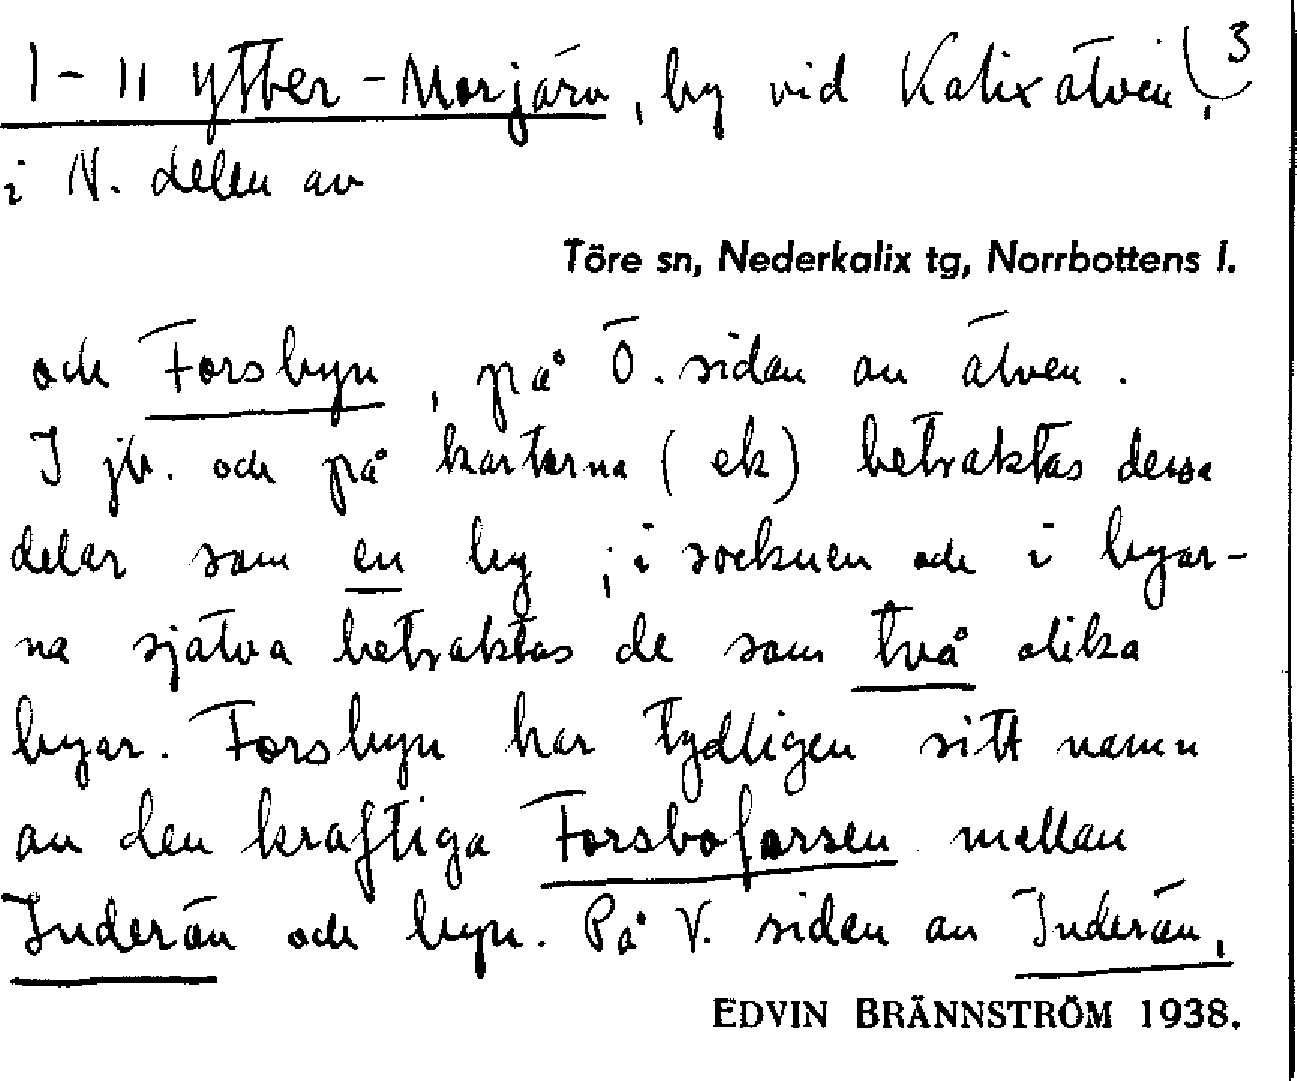 I-II Ytter-Morjärv, by vid Kalixälven, 3
i N. delen av
Töre sn, Nederkalix tg, Norrbottens l.
och Forsbyn, på Ö. sidan av älven.
I jb. och på kartorna (ek) betraktas dessa
delar som en by; i socknen och i byar-
na själva betraktas de som två olika
byar. Forsbyn har tydligen sitt namn
av den kraftiga Forsboforsen mellan
Inderån och byn. På V. sidan av Inderån,
EDVIN BRÄNNSTRÖM 1938.